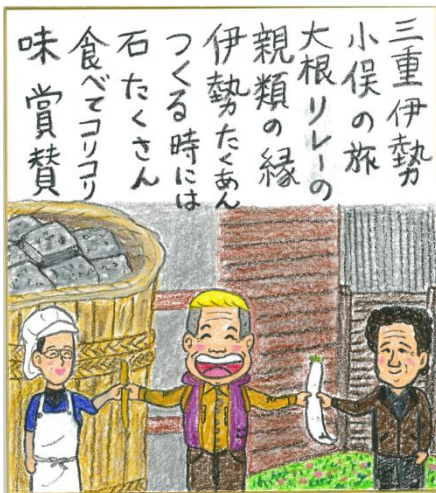 三重伊勢
小俣の旅
大根リレーの
親類の縁
伊勢たくあん
つくる時には
石たくさん
食べてコリコリ
味賞賛